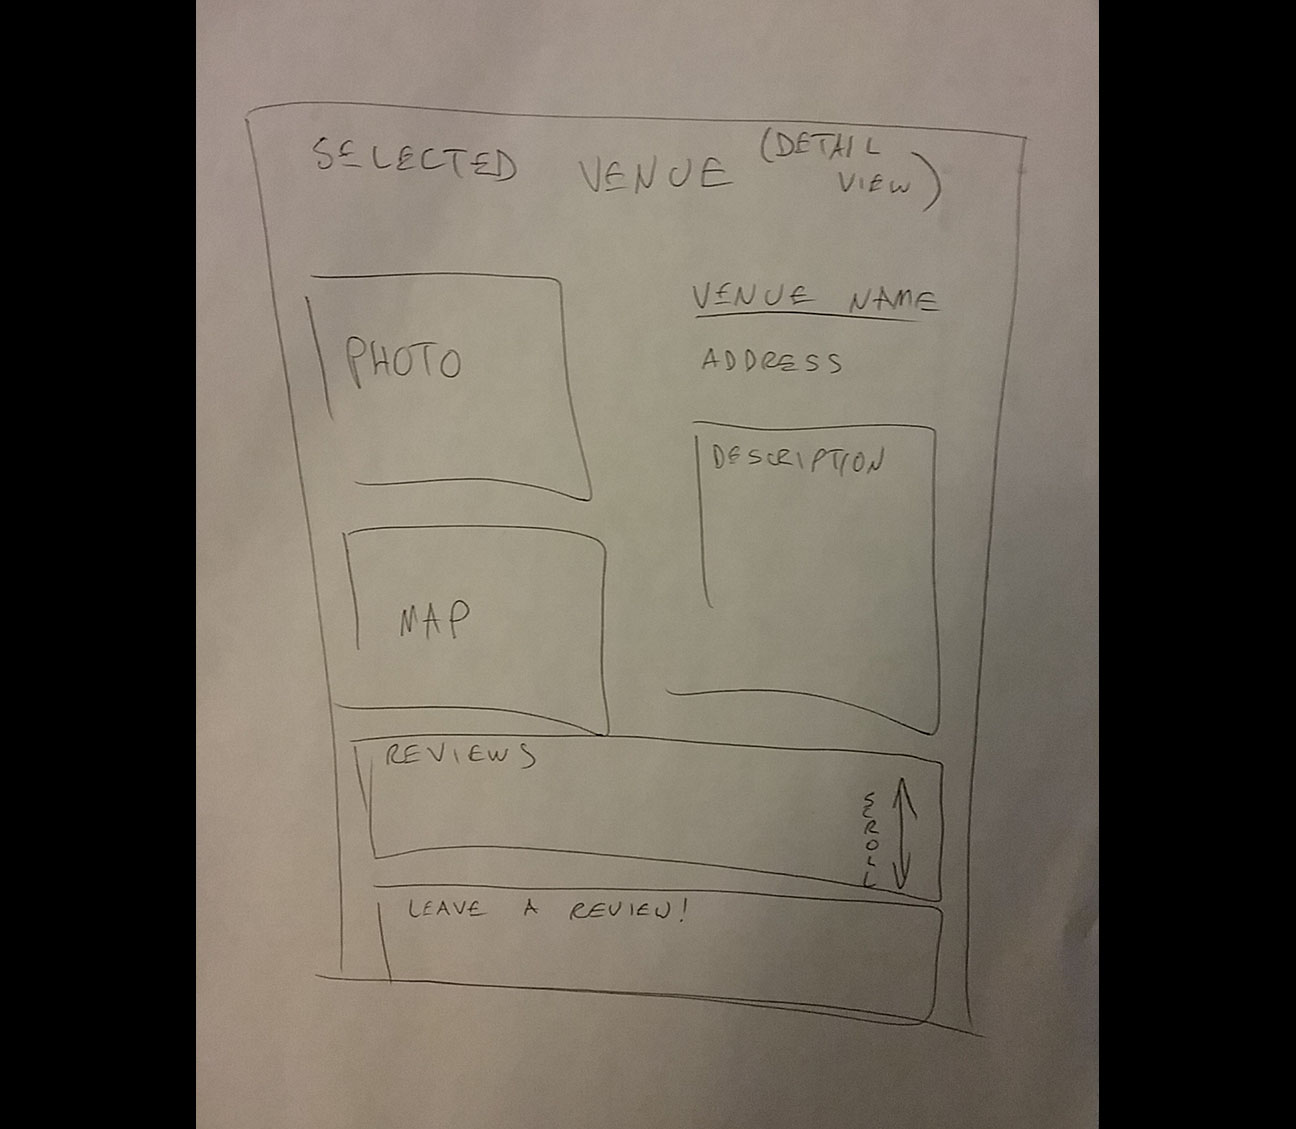 SELECTED VENUE (DETAIL
VIEW)
PHOTO
VENUE NAME
ADDRESS
DESCRIPTION
MAP
REVIEWS
SCROLL
LEAVE A REVIEW!